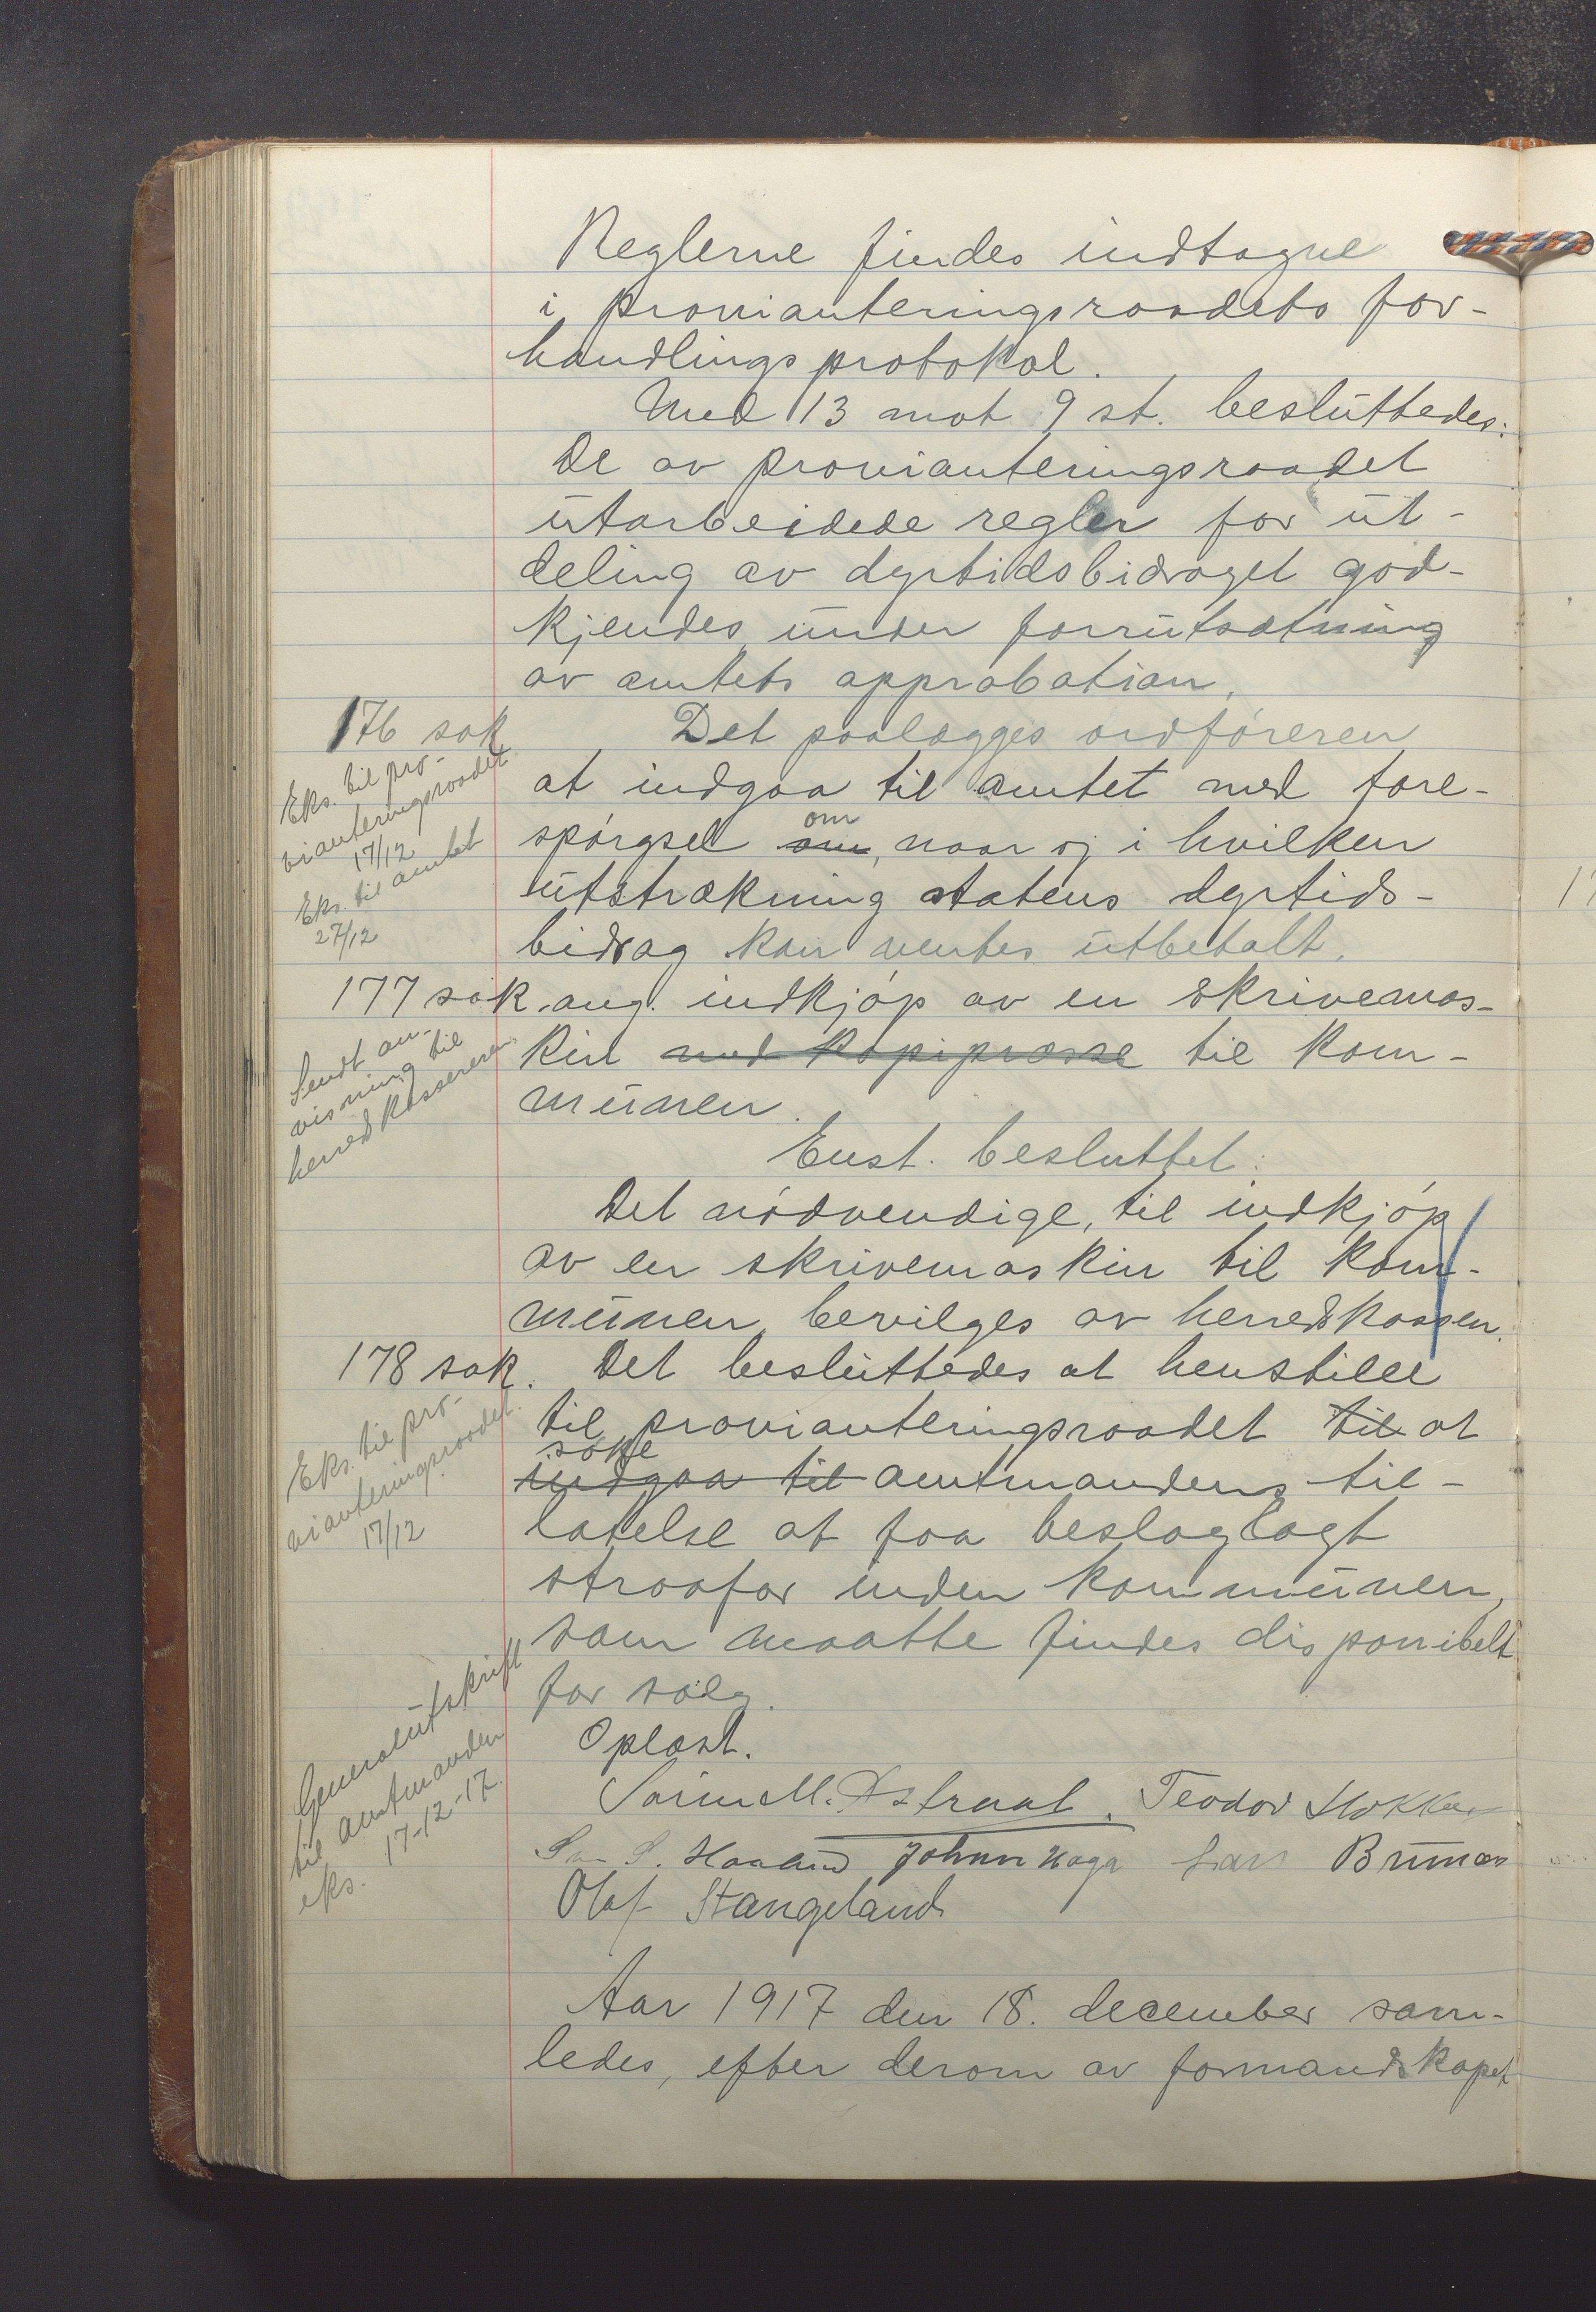 Reglerne findes indtagne
i provianteringsraadets for-
handlingsprotokol.
Med 13 mot 9 st. besluttedes:
De av provianteringsraadet
utarbeidede regler for ut-
deling av dyrtidsbidraget god-
kjendes under forrutsætning
av amtets approbation.
176 sak
Eks. til pro-
vianteringsraadet
17/12
Eks. til amtet
27/12
Det paalægges ordføreren
at indgaa til amtet med fore-
spørgsel om, naar og i hvilken
utstrækning statens dyrtids-
bidrag kan ventes utbetalt.
177 sak. ang. indkjøp av en skrivemas-
kin med kopipresse til kom-
munen.
Sendt an-
visning til
herredskassereren.
Enst. besluttet:
Det nødvendige, til indkjøp
av en skrivemaskin til kom-
munen, bevilges av herredskassen.
178 sak. Det besluttedes at henstille
til provianteringsraadet til at
søke
indgaa til amtmandens til-
latelse at faa beslaglagt
straafor inden kommunen,
som maatte findes disponibelt
for salg.
Eks. til pro-
vianteringsraadet.
17/12
Oplæst.
Generalutskrift
til amtmanden
17-12-17.
eks.
M. Teodor
S. Haaland Johan Haga Lars
Olaf Stangeland
Aar 1917 den 18. december sam-
ledes, efter derom av formandskapet